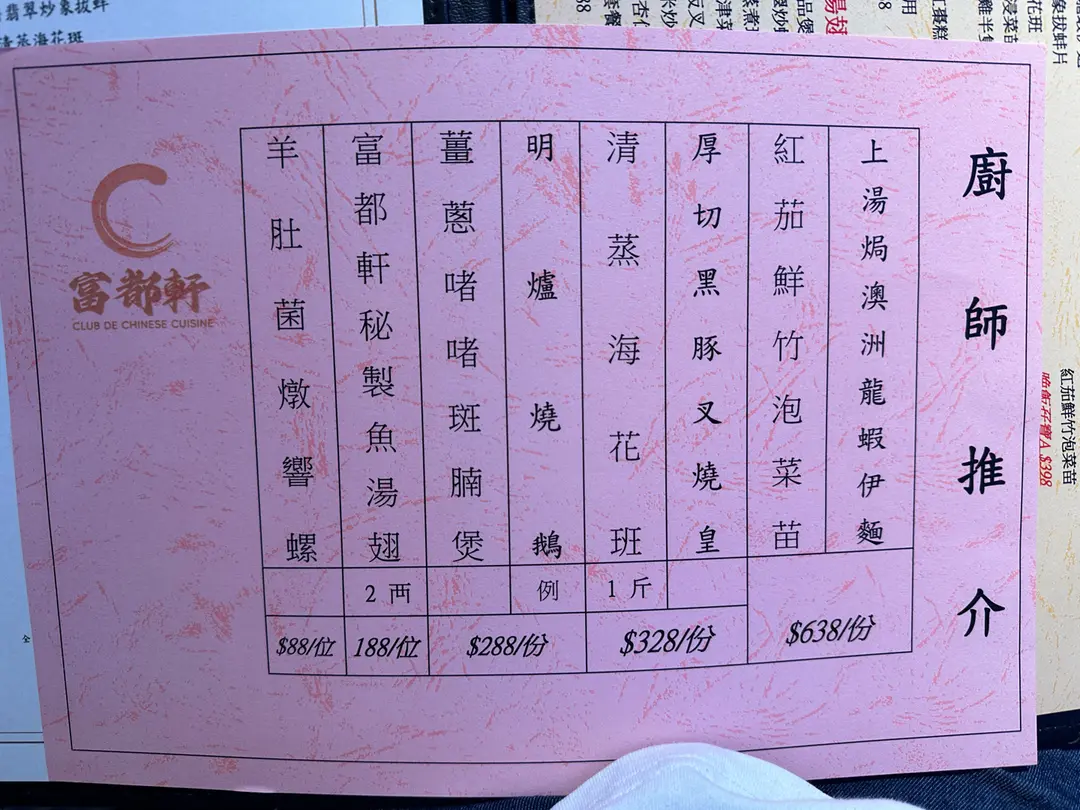 廚師推介
上湯焗澳洲龍蝦伊麵
紅茄鮮竹泡菜苗
$638/份
厚切黑豚叉燒皇
清蒸海花班
1斤
$328/份
明爐燒鵝
例
薑蔥啫啫斑腩煲
$288/份
富都軒秘製魚湯翅
2両
188/位
羊肚菌燉響螺
$88/位
富都軒
CLUB DE CHINESE CUISINE
翡翠炒象拔蚌
清蒸海花斑
紅茄鮮竹泡菜苗
晚飯套餐A $398